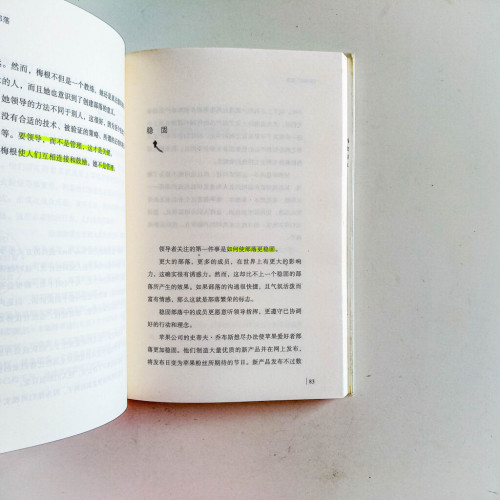 部落
。然而，梅根不但是一个教练，她还是
的人，而且她也意识到了创建部落的意义。
她领导的方法不同于别人，这很好，因为
没有合适的技术、被验证的策略，所谓的
等。要领导，而不是管理，这才是关键。
梅根使人们互相连接和鼓励，她不
稳 固
领导者关注的第一件事是如何使部落更稳固。
更大的部落，更多的成员，在世界上有更大的影响
力，这确实很有诱惑力。然而，这却比不上一个稳固的部
落所产生的效果。如果部落的沟通很快捷，且气氛活泼而
富有情感，那么这就是部落繁荣的标志。
稳固部落中的成员更愿意听领导指挥，更遵守已协调
好的行动和理念。
苹果公司的史蒂夫·乔布斯想尽办法使苹果爱好者部
落更加稳固。他们制造大量优质的新产品并在网上发布，
将发布日变为苹果粉丝所期待的节日。新产品发布不过数
83